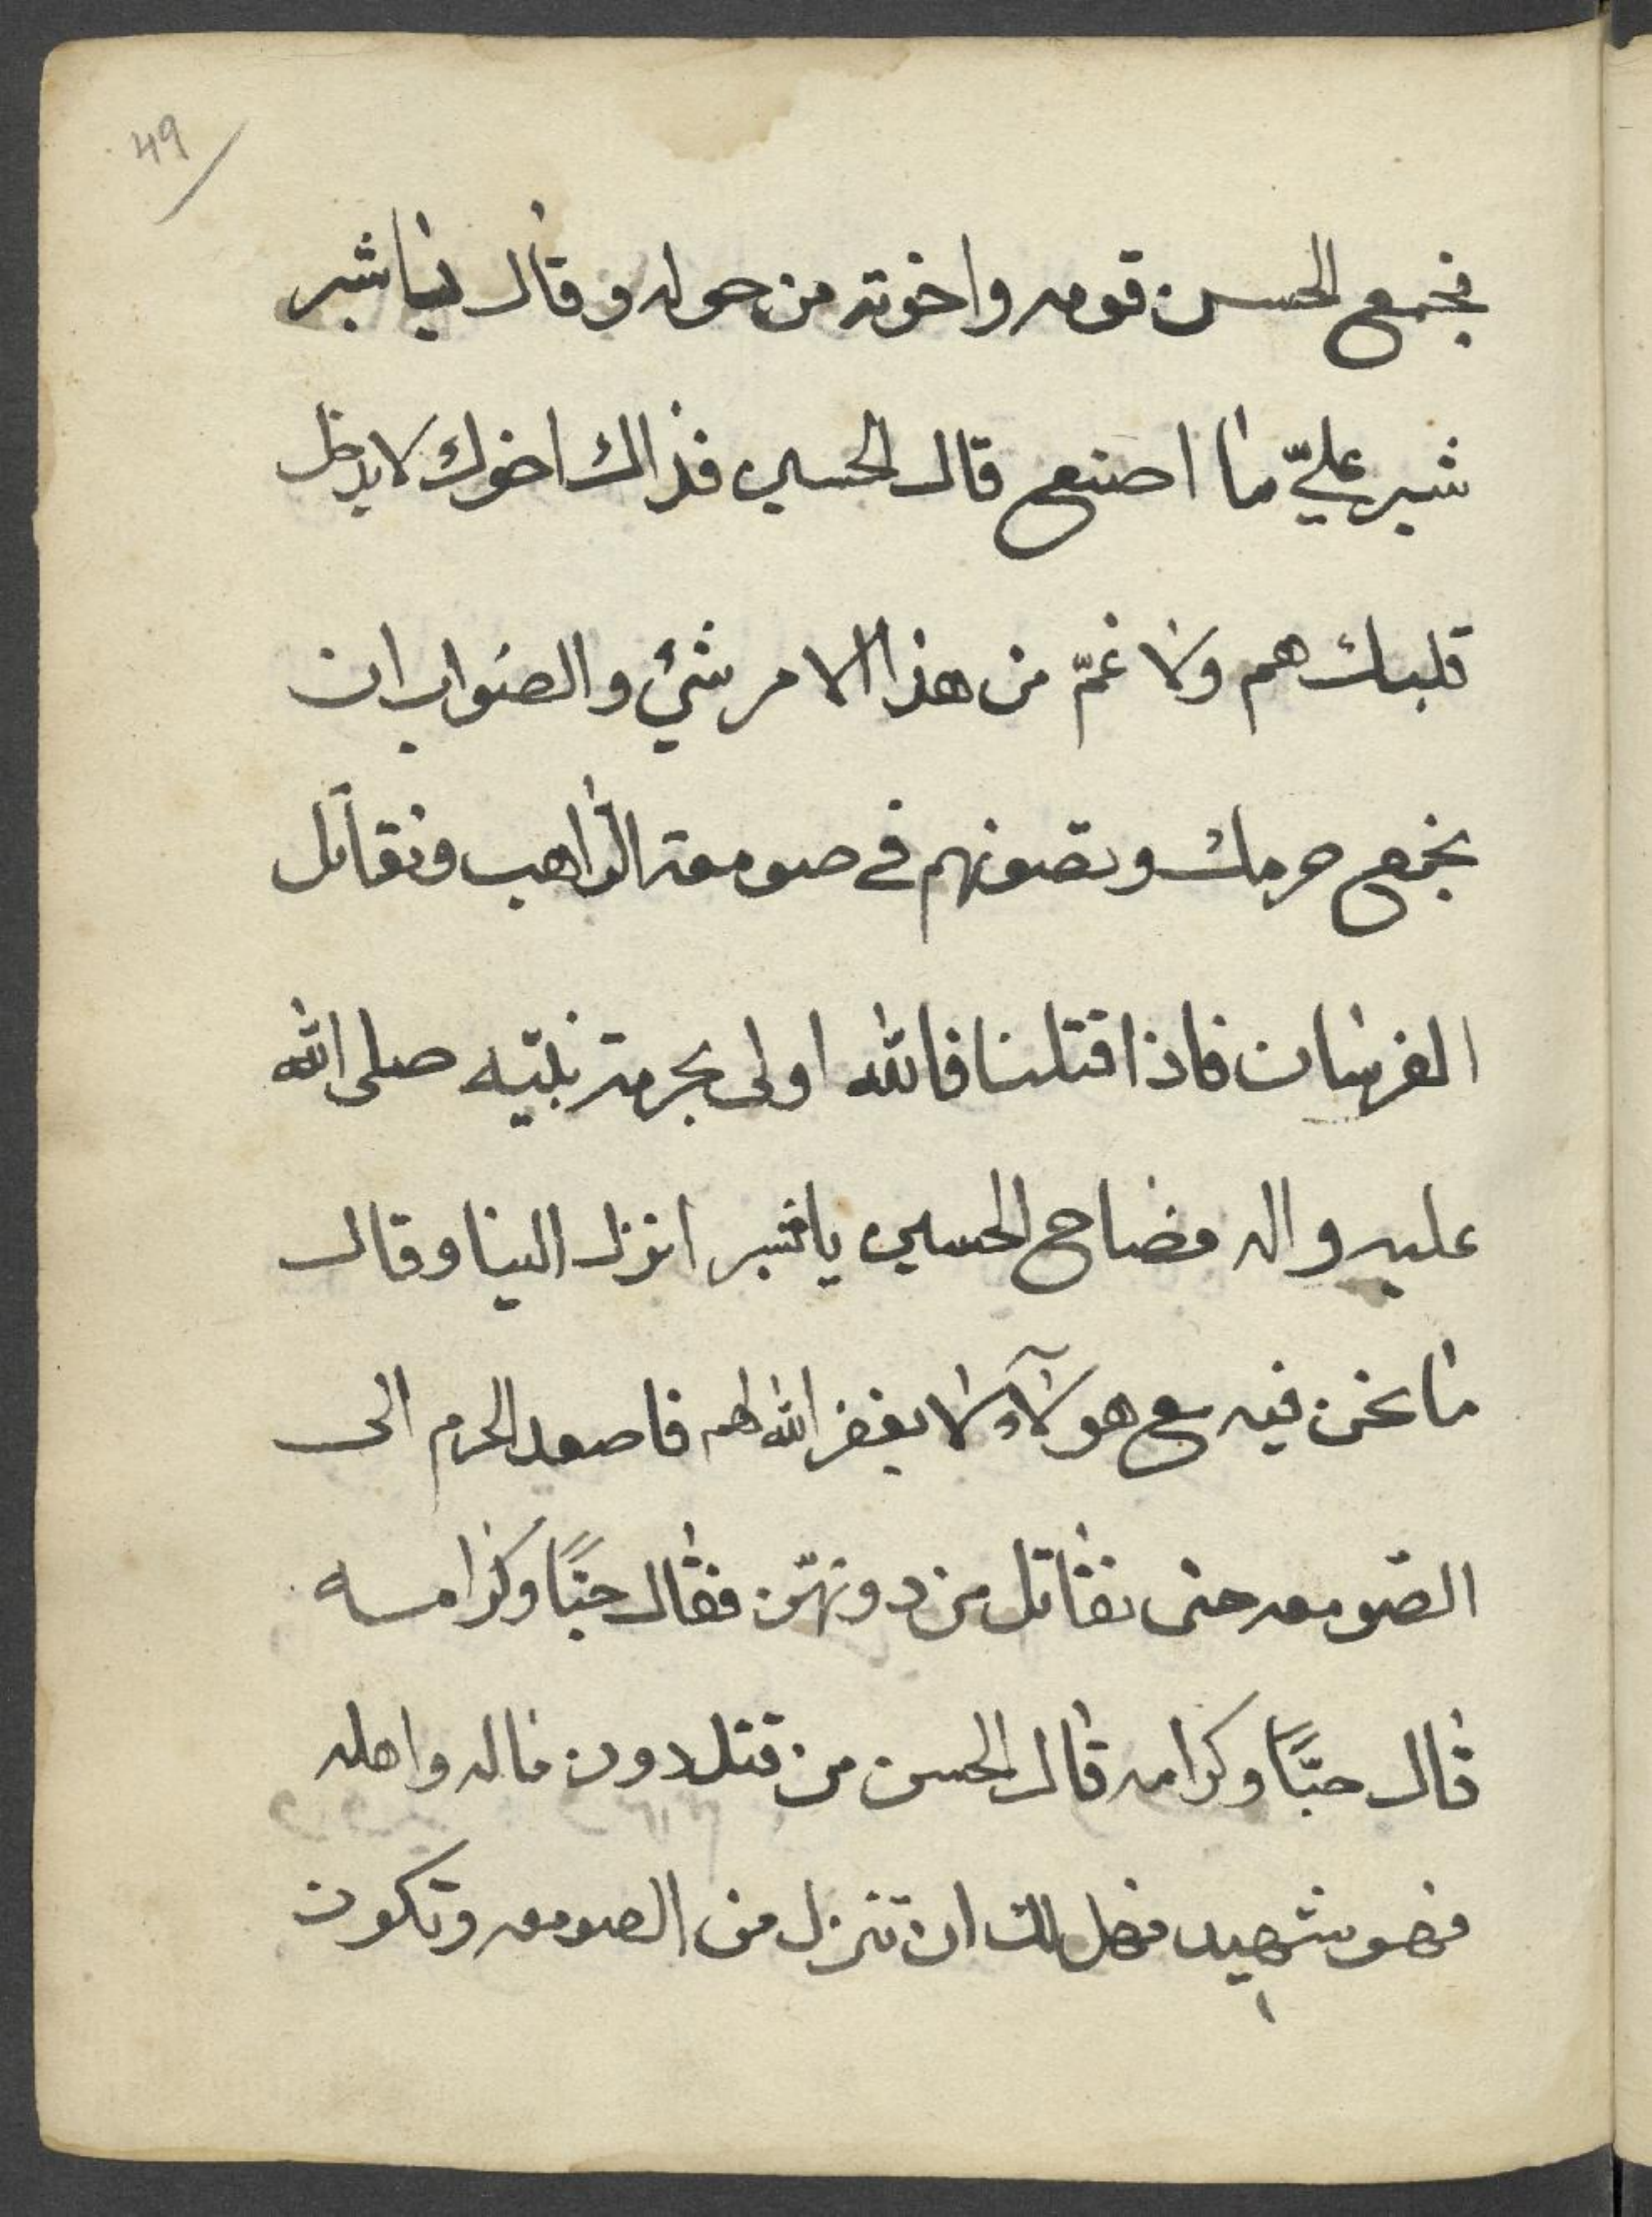 49
فجمع الحسن قومه واخوته من حوله وقال يا شبر
شبر عليّ ما اصنع قال الحسين فذاك اخوك لا يدخل
قلبك هم ولا غمّ من هذا الامر شئ والصواب ان
نجمع حرمك ونصونهم في صومعة الراهب ونقاتل
الفرسان فاذا قتلنا فالله اولى بحرمة نبيّه صلى الله
عليه واله فصاح الحسين يا قنبر انزل الينا وقال
ما نحن فيه مع هولآء لا يغفر الله لهم فاصعد الحرم الى
الصومعه حتى نقاتل من دونهّن فقال حبًا وكرامه
قال حبًّا وكرامه قال الحسن من قتل دون ماله واهله
فهو شهيد فهل لك ان تنزل من الصومعه وتكون